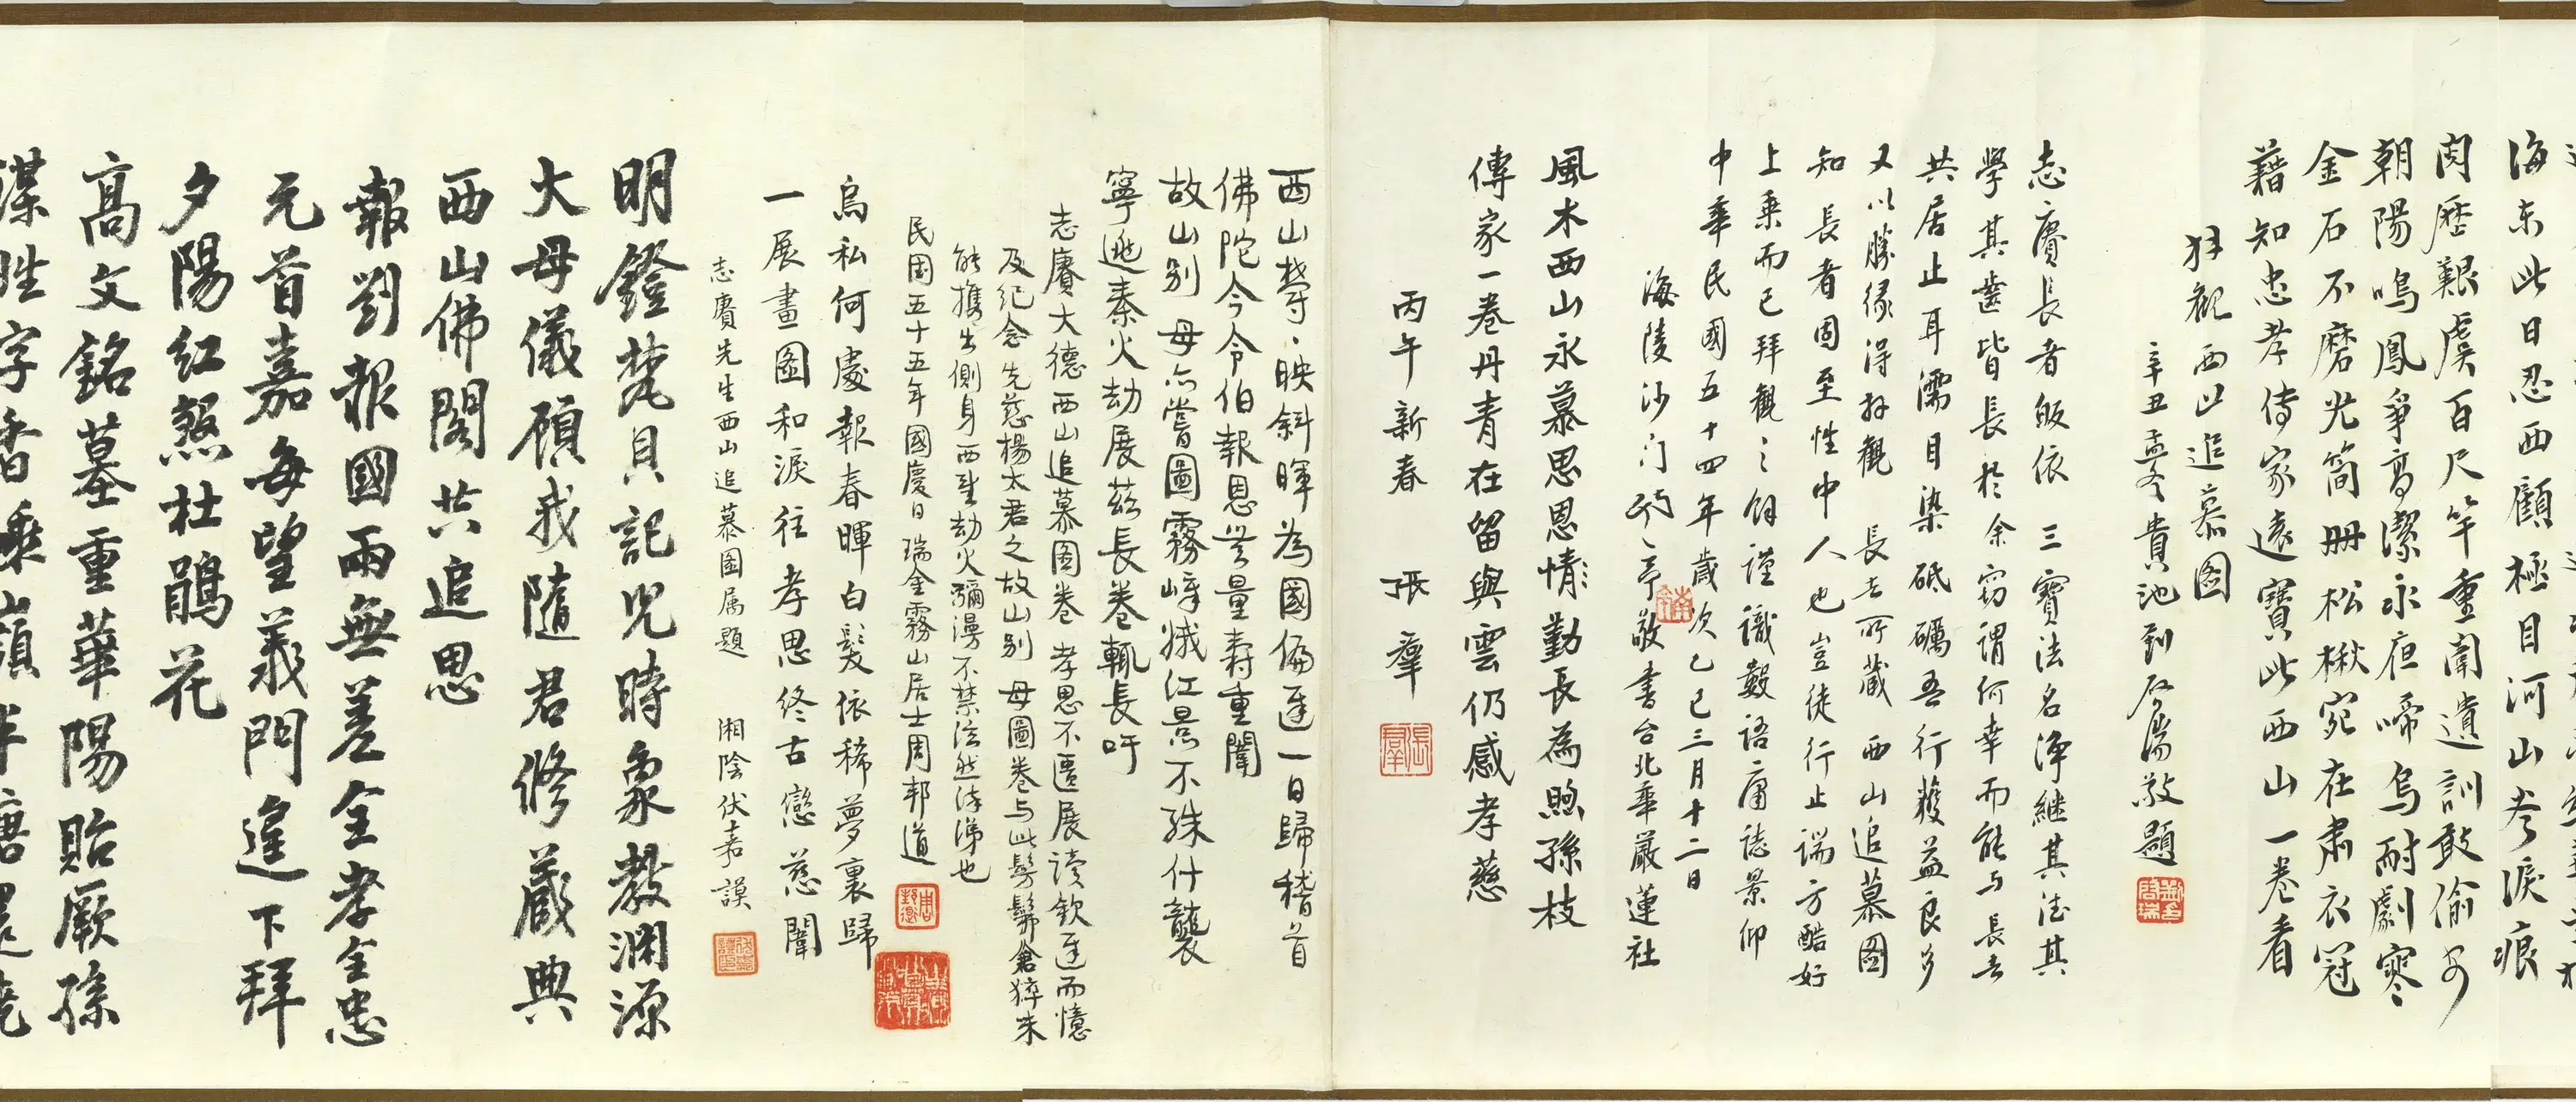 海東此日忍西顧極目河山考淚痕
閱歷艱虞百尺竿重闈遺訓敢偷
朝陽鳴鳳爭高潔永夜啼烏耐劇寒
金石不磨光簡冊松楸宛在肅衣冠
藉知忠孝傳家遠寶此西山一卷看
拜觀西山追慕圖
辛丑孟冬貴池劉啓瑞敬題
志賡長者皈依 三寶法名淨継其法其
學其齒皆長於余窃谓何幸而能与長者
共居止耳濡目染砥礪吾行獲益良多
又以勝緣得拜觀 長者所藏 西山追慕圖
知 長者固至性中人也豈徒行止端方酷好
上乗而已拜觀之餘谨識數語庸誌景仰
中華民國五十四年歲次乙巳三月十二日
海陵沙门 亭敬書台北華嚴蓮社
風木西山永慕思恩情勤長為煦孫枝
傳家一卷丹青在留與雲仍感孝慈
丙午新春 張羣
酉山梦映斜暉為國偏遲一日歸稽首
佛陀今令伯報恩無量壽重闈
故山别母亦嘗圖霧嶂 江景不殊什襲
寧逃秦火劫展茲長卷輒長吁
志賡大德西山追慕图卷孝思不匮展读钦遲而憶
及纪念先慈楊太君之故山别母圖卷与此髣髴倉猝未
能攜出側身西望劫火瀰漫不禁泫然涕也
民国五十五年國慶日瑞金霧山居士周邦道
烏私何處報春暉白髮依稀夢裏歸
一展畫圖和淚往孝思終古戀慈闈
志賡先生西山追慕圖属題 湘陰伏嘉謨
明鐙梵貝記兒時象教淵源
大母儀顧我隨君修藏典
西山佛閣共追思
報劉報國兩無差全孝全忠
元首嘉每望義門遑下拜
夕陽红煞杜鵑花
高文銘墓重華陽貽厥孫
謀姓字香